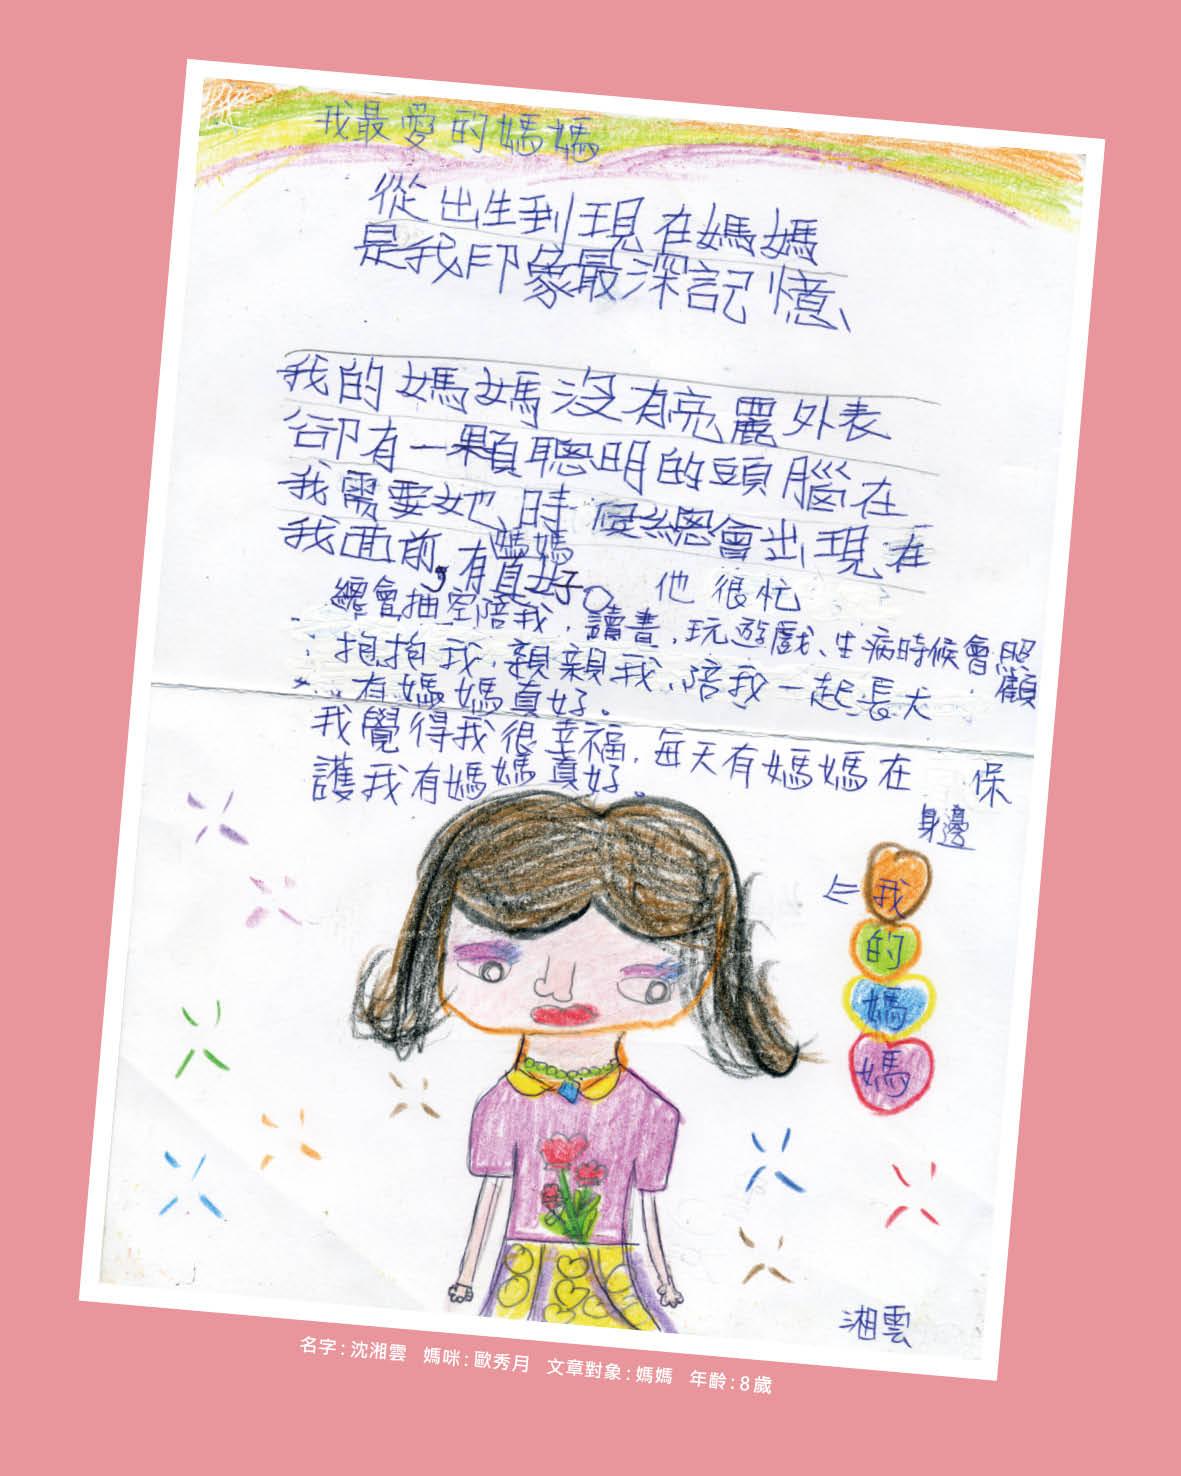 我最愛的媽媽
從出生到現在媽媽
是我印象最深記憶、
我的媽媽沒有亮麗外表
卻有一顆聰明的頭腦在
我需要她時候總會出現在
我面前,有媽媽真好。他很忙
總會抽空陪我,讀書,玩遊戲、生病時候會照顧
抱抱我,親親我,陪我一起長大
有媽媽真好。
我覺得我很幸福,每天有媽媽在身邊保
護我有媽媽真好。
我的媽媽
湘雲
名字:沈湘雲 媽咪:歐秀月 文章對象:媽媽 年齡:8歲